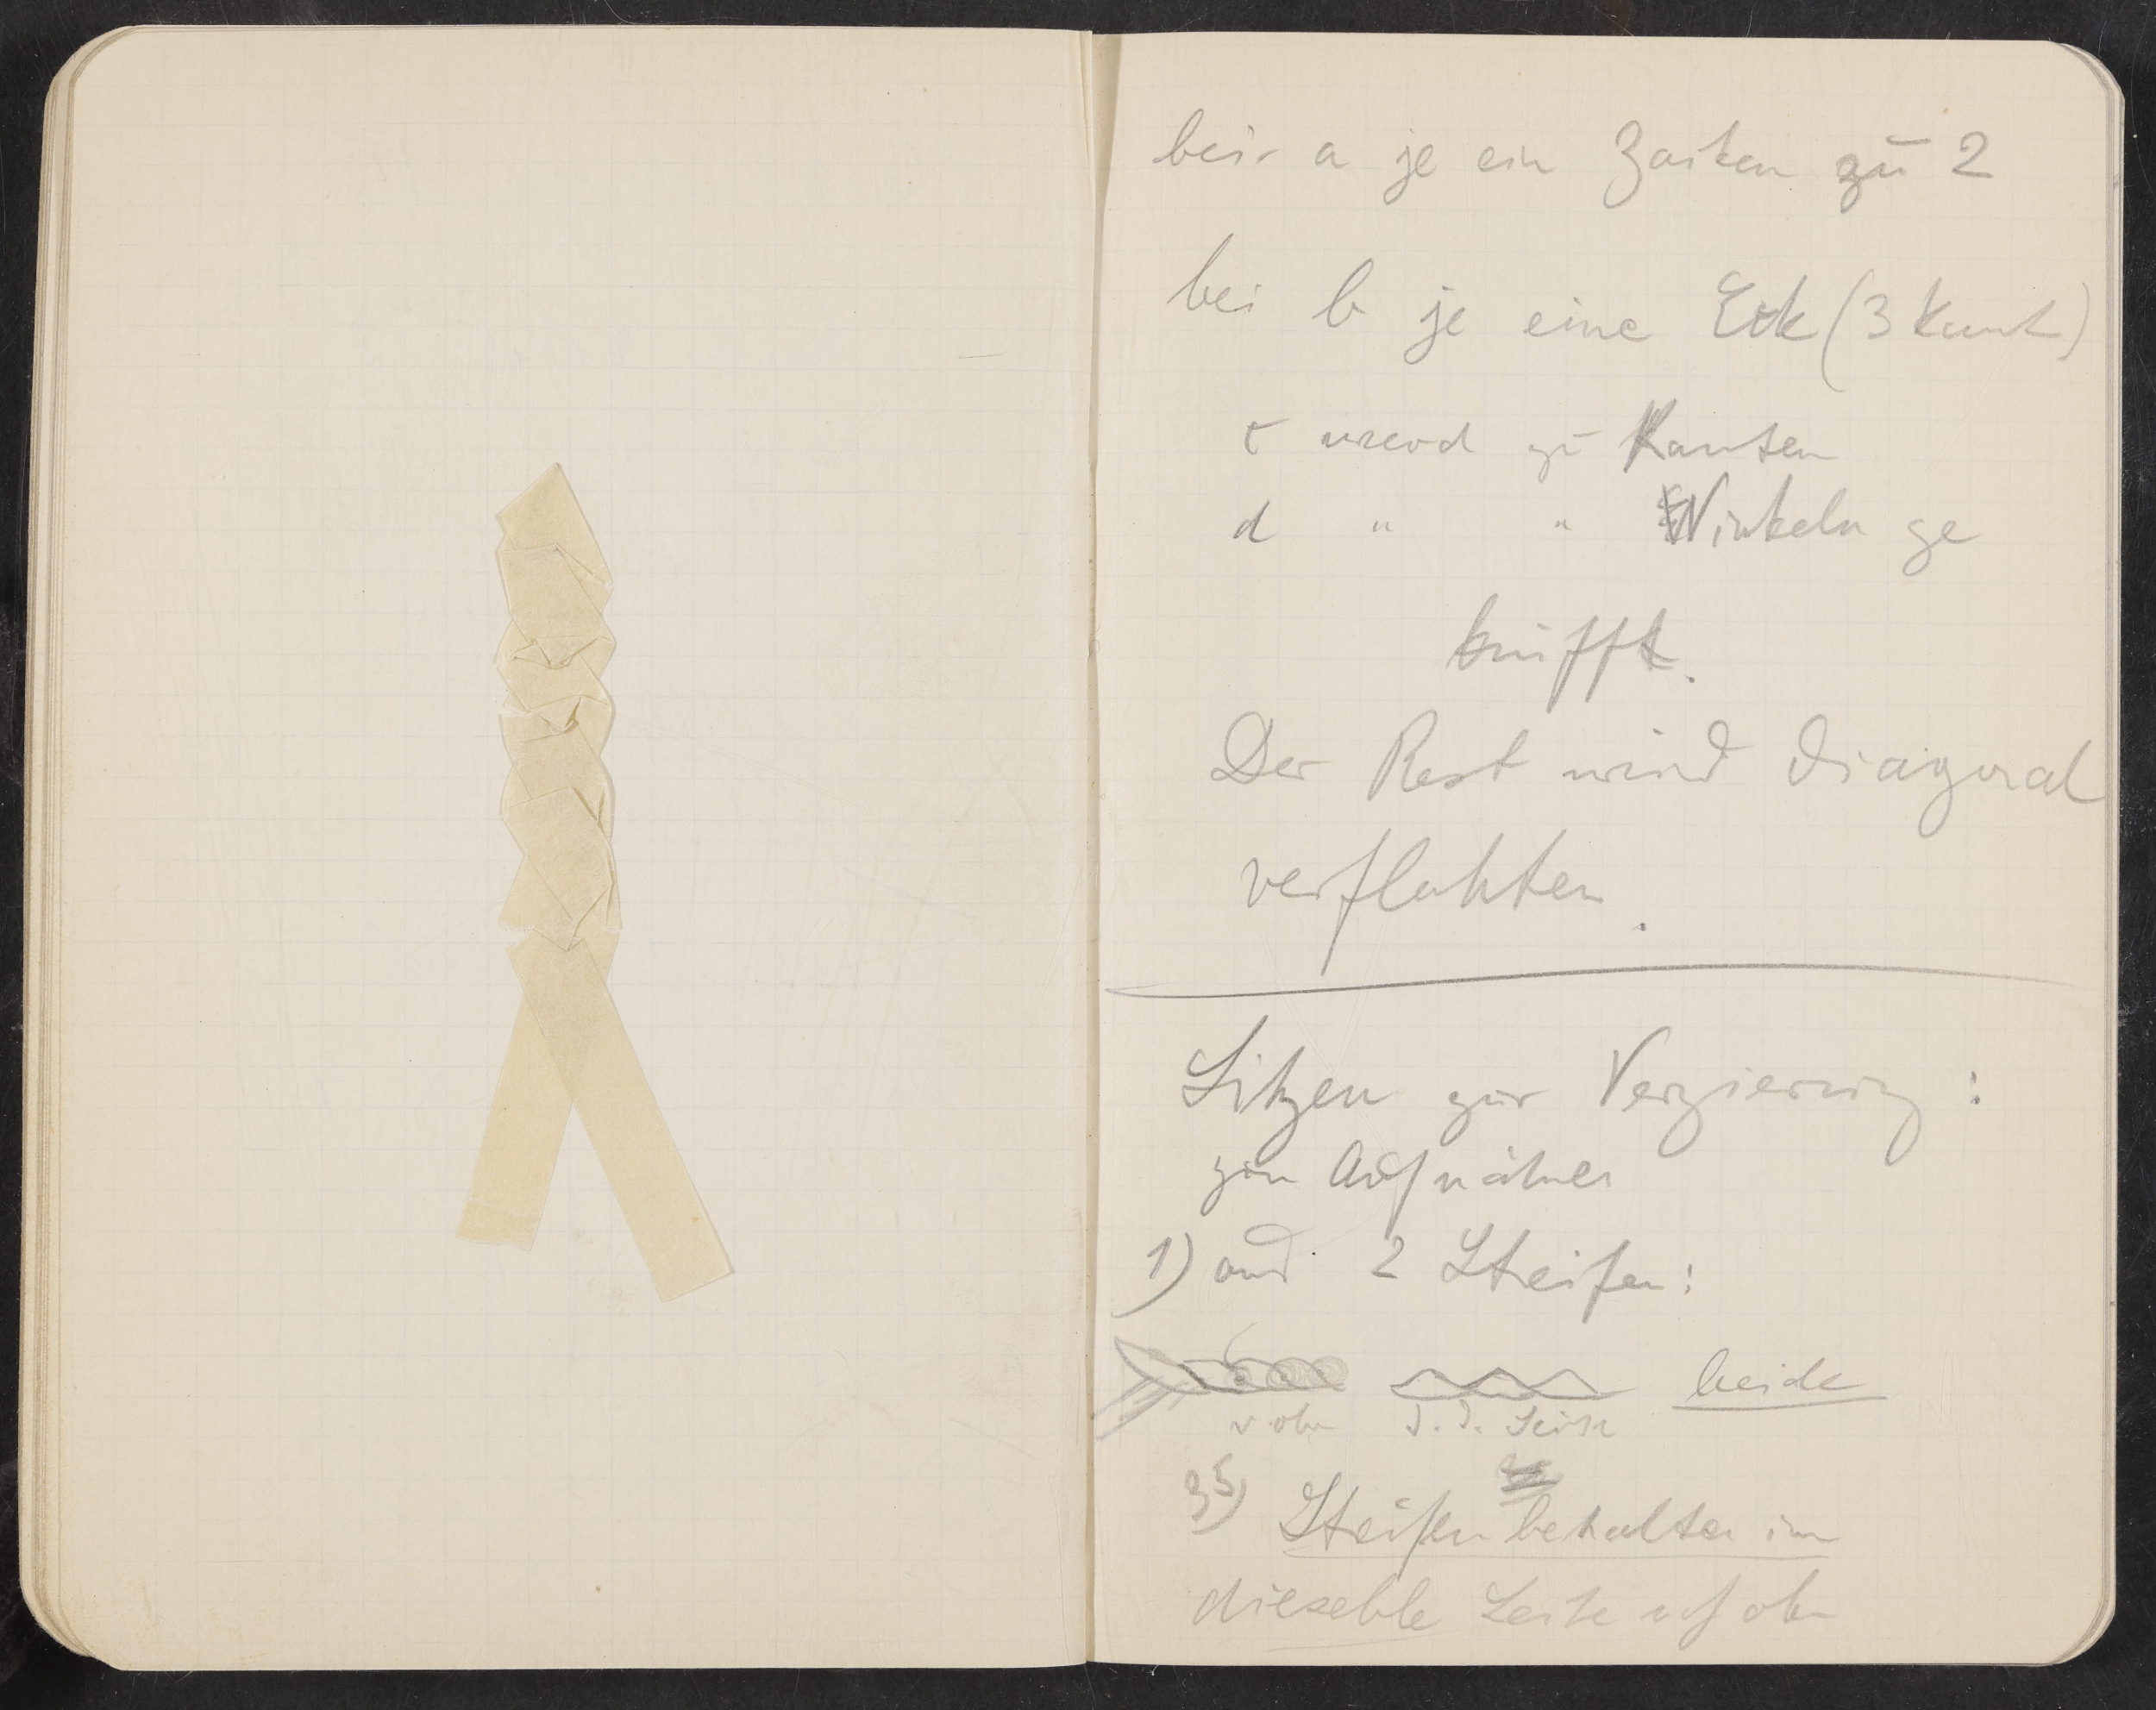 bei a je ein Zacken zu 2
bei b je eine Eck (3 Kant)
c werd zu Kanten
d " " Winkeln ge
knifft.
Der Rest wird diagonal
verflochten.
Litzen zur Verzierung:
zum Aufnähen
1) aus 2 Streifen:
beide
v. oben v. d. Seite
Streifen behalten im
dieselbe Seite auf oben